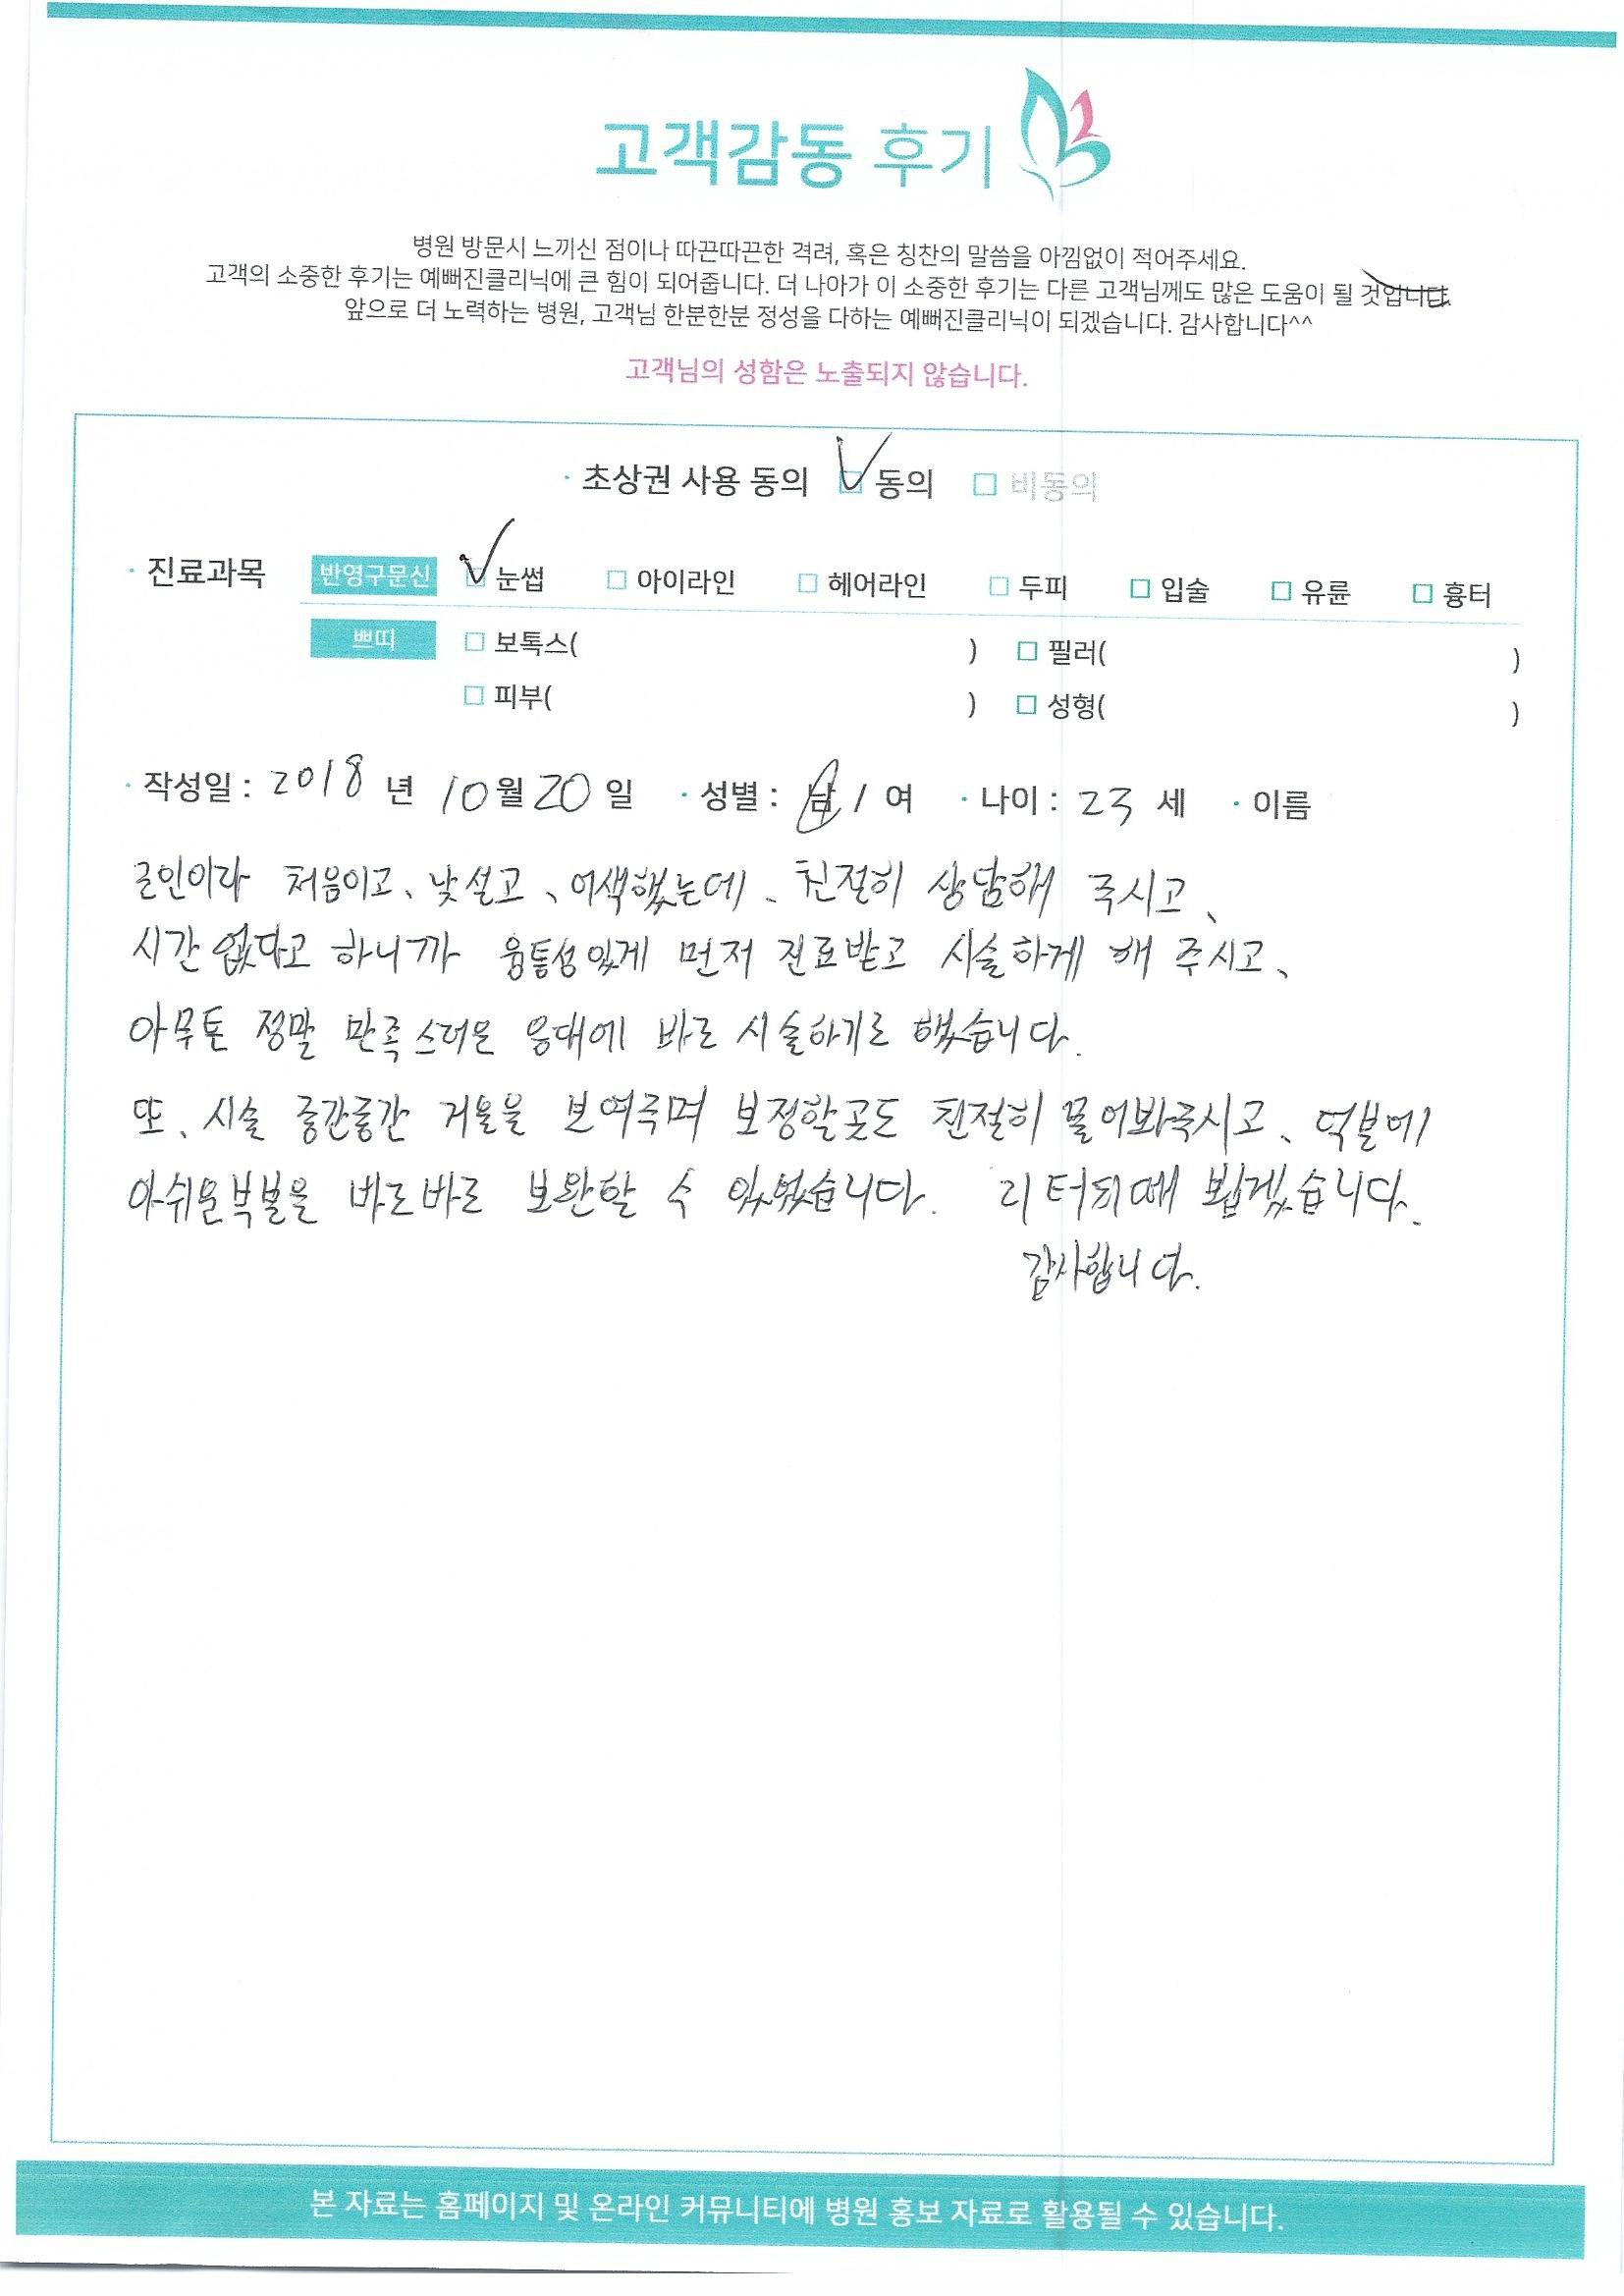 고객감동 후기
병원 방문시 느끼신 점이나 따끈따끈한 격려, 혹은 칭찬의 말씀을 아낌없이 적어주세요.
고객의 소중한 후기는 예뻐진클리닉에 큰 힘이 되어줍니다. 더 나아가 이 소중한 후기는 다른 고객님께도 많은 도움이 될 것입니다.
앞으로 더 노력하는 병원, 고객님 한분한분 정성을 다하는 예뻐진클리닉이 되겠습니다. 감사합니다^^
고객님의 성함은 노출되지 않습니다.
· 초상권 사용 동의 동의 비동의
· 진료과목 반영구문신 눈썹 아이라인 헤어라인 두피 입술 유륜 흉터
쁘띠 보톡스( ) 필러( )
피부( ) 성형( )
· 작성일 : 2018 년 10월 20 일 · 성별 : 남 / 여 · 나이 : 23 세 · 이름
군인이라 처음이고, 낯설고, 어색했는데, 친절히 상담해 주시고,
시간 없다고 하니까 융통성있게 먼저 진료받고 시술하게 해 주시고,
아무튼 정말 만족스러운 응대에 바로 시술하기로 했습니다.
또, 시술 중간중간 거울을 보여주며 보정할곳도 친절히 물어봐주시고, 덕분에
아쉬운부분을 바로바로 보완할 수 있었습니다. 리터치때 뵙겠습니다.
감사합니다.
본 자료는 홈페이지 및 온라인 커뮤니티에 병원 홍보 자료로 활용될 수 있습니다.